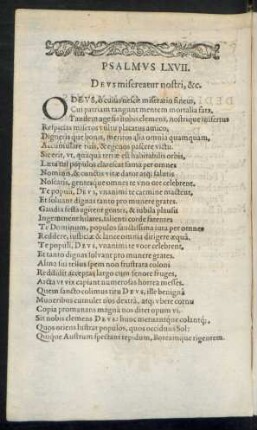 PSALMVS LXVII.
DEVS misereatur nostri, &c.
O DEVS, ô cuius miseratio
Cui patriam tangunt mentem mortalia fata,
Tandem agesis nobis clemens, nostrique misertus
Respicias miseros vultu placatus amico,
Digneris que bona, & meritis alia omnia quamquam,
Accumulare tuis, & egenos pascere victu.
Sic erit, vt, quaqua terræ est habitabilis orbis,
Laus tui populos clarescat fama per omnes
Nominis, & cunctis vitæ datorumq; salutis
Noscaris, gentesque omnes te vno ore celebrent.
Te populi, DEVS, vnanimi te carmine mactent,
Et soluant dignas tanto pro munere grates.
Gaudia festa agitent genus, & iubila plausu
Ingeminent hilares, salienti corde fatentes
Te Dominum, populos sanctissima iura per omnes
Reddere, iustitiæ & latos omnia dirigere æqua.
Te populi, DEVS, vnanimi te voce celebrent,
Et tanto dignas soluant pro munere grates.
Alma sui terra spem non frustrata coloni
Reddidit acceptas largo cum fœnore fruges,
Aucta vt vix capiant numerosas horrea messes.
Quem sancto colimus ritu DEVS, ille benigna
Muneribus cumulet nos dextra, atq; vbere cornu
Copia promanans magna nos ditet opum vi.
Sit nobis clemens DEVS: hunc metuantque colantq;,
Quos oriens lustrat populos, quos occiduus Sol:
Quique Austrum spectant tepidum, Boreamque rigentem.